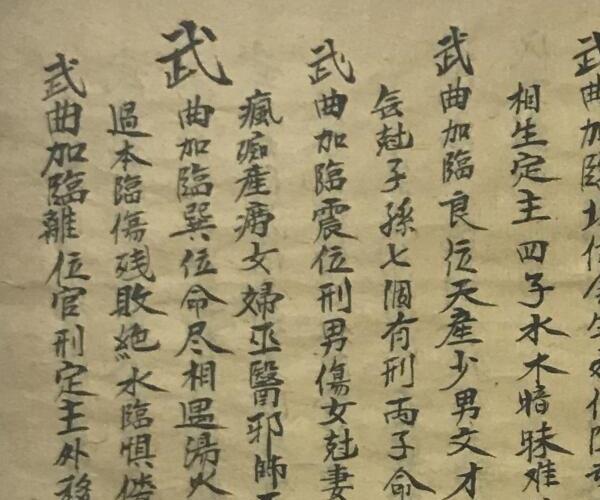 武曲加臨坎位
相生定主四子水木暗昧难
武曲加臨艮位天産少男文才
会尅子孫七個有刑両子命
武曲加臨震位刑男傷女尅妻
瘋痴産痨女婦巫醫邪師
武曲加臨巽位命尽相遇湯火
過本臨傷残敗絶水臨惧
武曲加臨離位官刑定主外移